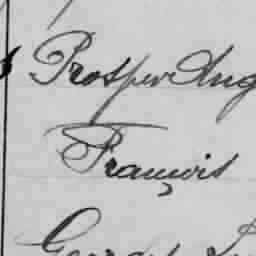 Prosper Aug
François
Georges